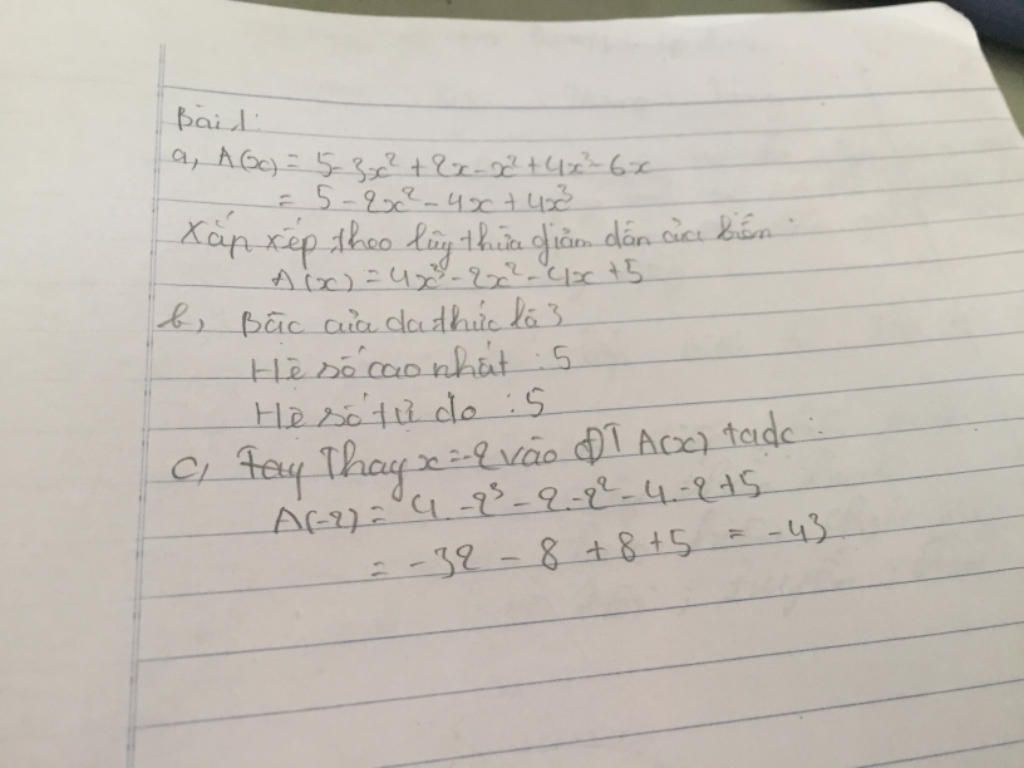 Bài 1:
a, A(x) = 5 - 3x² + 2x - x² + 4x³ - 6x
= 5 - 2x² - 4x + 4x³
Xắp xếp theo lũy thừa giảm dần của biến:
A(x) = 4x³ - 2x² - 4x + 5
b, Bậc của đa thức là 3
Hệ số cao nhất : 5
Hệ số tự do : 5
c, Tay Thay x = -2 vào ĐT A(x) ta dc :
A(-2) = 4. -2³ - 2. -2² - 4. -2 + 5
= -32 - 8 + 8 + 5 = -43